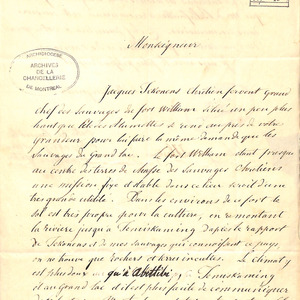 ARCHIDIOCÈSE
ARCHIVES
DE LA
CHANCELLERIE
DE MONTRÉAL
Monseigneur
Jacques Sekonens chrétien fervent grand
chef des Sauvages du fort William situé un peu plus
haut que l'Isle des Allumettes se rend auprès de votre
grandeur pour lui faire la même demande que les
Sauvages du Grand lac. Le fort William étant presque
au centre des terres de chasse des Sauvages chrétiens
une mission fixe établie dans ce lieu serait d'une
très grande utilité. Dans les environs de ce fort le
sol est très propre pour la culture, en remontant
la rivière jusqu'à Temiskaming d'après le rapport
de Sekonens et de mes sauvages qui connaissent ce pays
on ne trouve que rochers et terres incultes. Le climat y
est plus doux qu'à Abittibi, à Temiskaming
et au Grand lac il est plus facile de communiquer